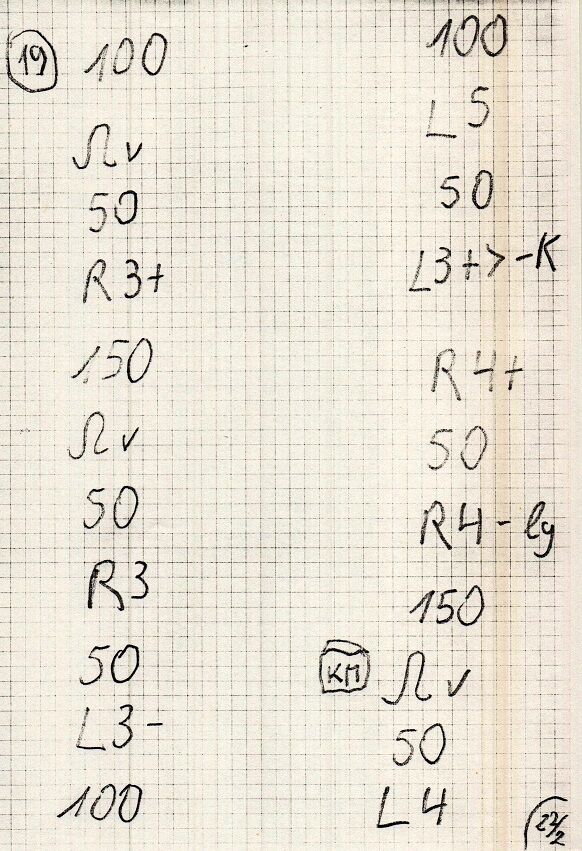 19 100
Ωv
50
R3+
150
Ωv
50
R3
50
L3-
100
100
L5
50
L3+>-K
R4+
50
R4-lg
150
КП Ωv
50
L4